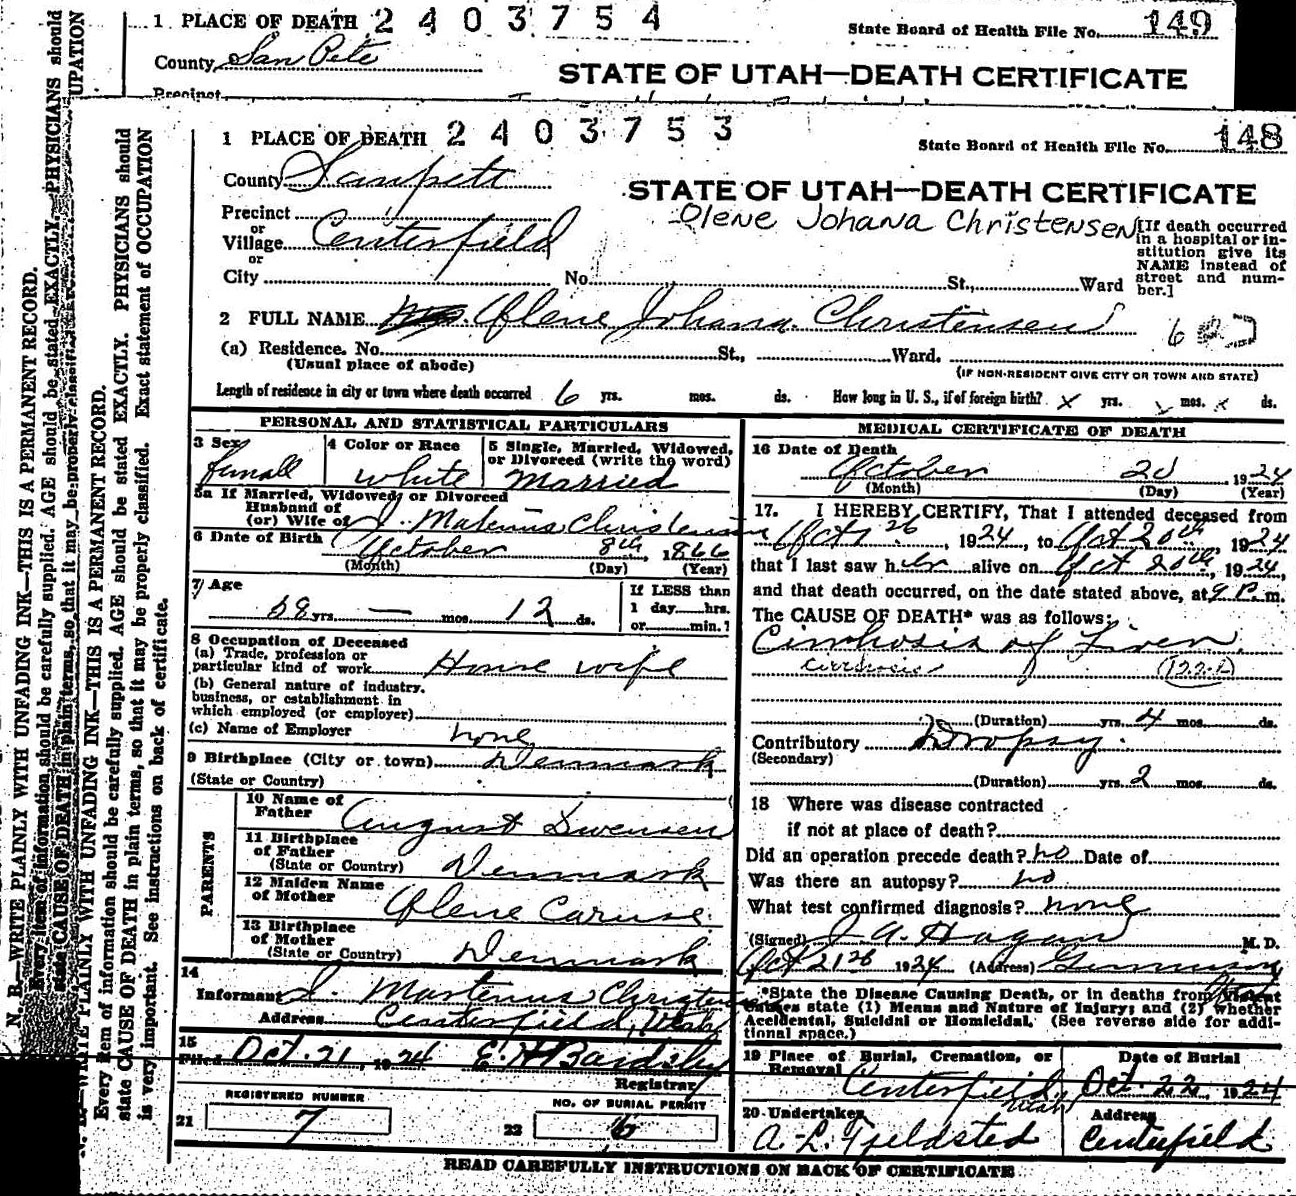 1 PLACE OF DEATH 2403754
State Board of Health File No. 149
County San Pete
STATE OF UTAH—DEATH CERTIFICATE
Precinct
1 PLACE OF DEATH 2403753
State Board of Health File No. 148
County Sanpete
STATE OF UTAH—DEATH CERTIFICATE
Olene Johana Christensen
Precinct
or
Village Centerfield
or
City No. St., Ward
[If death occurred
in a hospital or in-
stitution give its
NAME instead of
street and num-
ber.]
2 FULL NAME Mrs. Olene Johana Christensen
(a) Residence. No. St., Ward.
(Usual place of abode)
(IF NON-RESIDENT GIVE CITY OR TOWN AND STATE)
Length of residence in city or town where death occurred 6 yrs. mos. ds. How long in U. S., if of foreign birth? x yrs. x mos. x ds.
PERSONAL AND STATISTICAL PARTICULARS
3 Sex
Femall
4 Color or Race
White
5 Single, Married, Widowed,
or Divorced (write the word)
Married
5a If Married, Widowed, or Divorced
Husband of
(or) Wife of J. Martenus Christensen
6 Date of Birth October 8th, 1866
(Month) (Day) (Year)
7 Age
58 yrs. — mos. 12 ds.
If LESS than
1 day hrs.
or min.?
8 Occupation of Deceased
(a) Trade, profession or
particular kind of work House wife
(b) General nature of industry,
business, or establishment in
which employed (or employer)
(c) Name of Employer none
9 Birthplace (City or town) Denmark
(State or Country)
PARENTS
10 Name of
Father August Swensen
11 Birthplace
of Father
(State or Country) Denmark
12 Maiden Name
of Mother Olene Caruse
13 Birthplace
of Mother
(State or Country) Denmark
14
Informant J. Martenus Christensen
Address Centerfield, Utah
15
Filed Oct. 21, 1924 E. H. Bardsley
Registrar
REGISTERED NUMBER
21 7
NO. OF BURIAL PERMIT
22 6
MEDICAL CERTIFICATE OF DEATH
16 Date of Death
October 20, 1924
(Month) (Day) (Year)
17. I HEREBY CERTIFY, That I attended deceased from
Oct, 1924, to Oct 20th, 1924
that I last saw her alive on Oct 20th, 1924,
and that death occurred, on the date stated above, at 9 P. m.
The CAUSE OF DEATH* was as follows:
Cirrhosis of Liver
cirrhosis
(Duration) yrs. 4 mos. ds.
Contributory Dropsy.
(Secondary)
(Duration) yrs. 2 mos. ds.
18 Where was disease contracted
if not at place of death?
Did an operation precede death? no Date of
Was there an autopsy? no
What test confirmed diagnosis? none
(Signed) J A. Hagan M. D.
Oct 21st 1924 (Address) Gunnison
*State the Disease Causing Death, or in deaths from Violent
Causes state (1) Means and Nature of Injury; and (2) whether
Accidental, Suicidal or Homicidal. (See reverse side for addi-
tional space.)
19 Place of Burial, Cremation, or
Removal
Centerfield, Utah
Date of Burial
Oct. 22, 1924
20 Undertaker
A. L. Fjeldsted
Address
Centerfield
READ CAREFULLY INSTRUCTIONS ON BACK OF CERTIFICATE
N. B.—WRITE PLAINLY WITH UNFADING INK—THIS IS A PERMANENT RECORD.
Every item of information should be carefully supplied. AGE should be stated EXACTLY. PHYSICIANS should
state CAUSE OF DEATH in plain terms, so that it may be properly classified. Exact statement of OCCUPATION
is very important. See instructions on back of certificate.